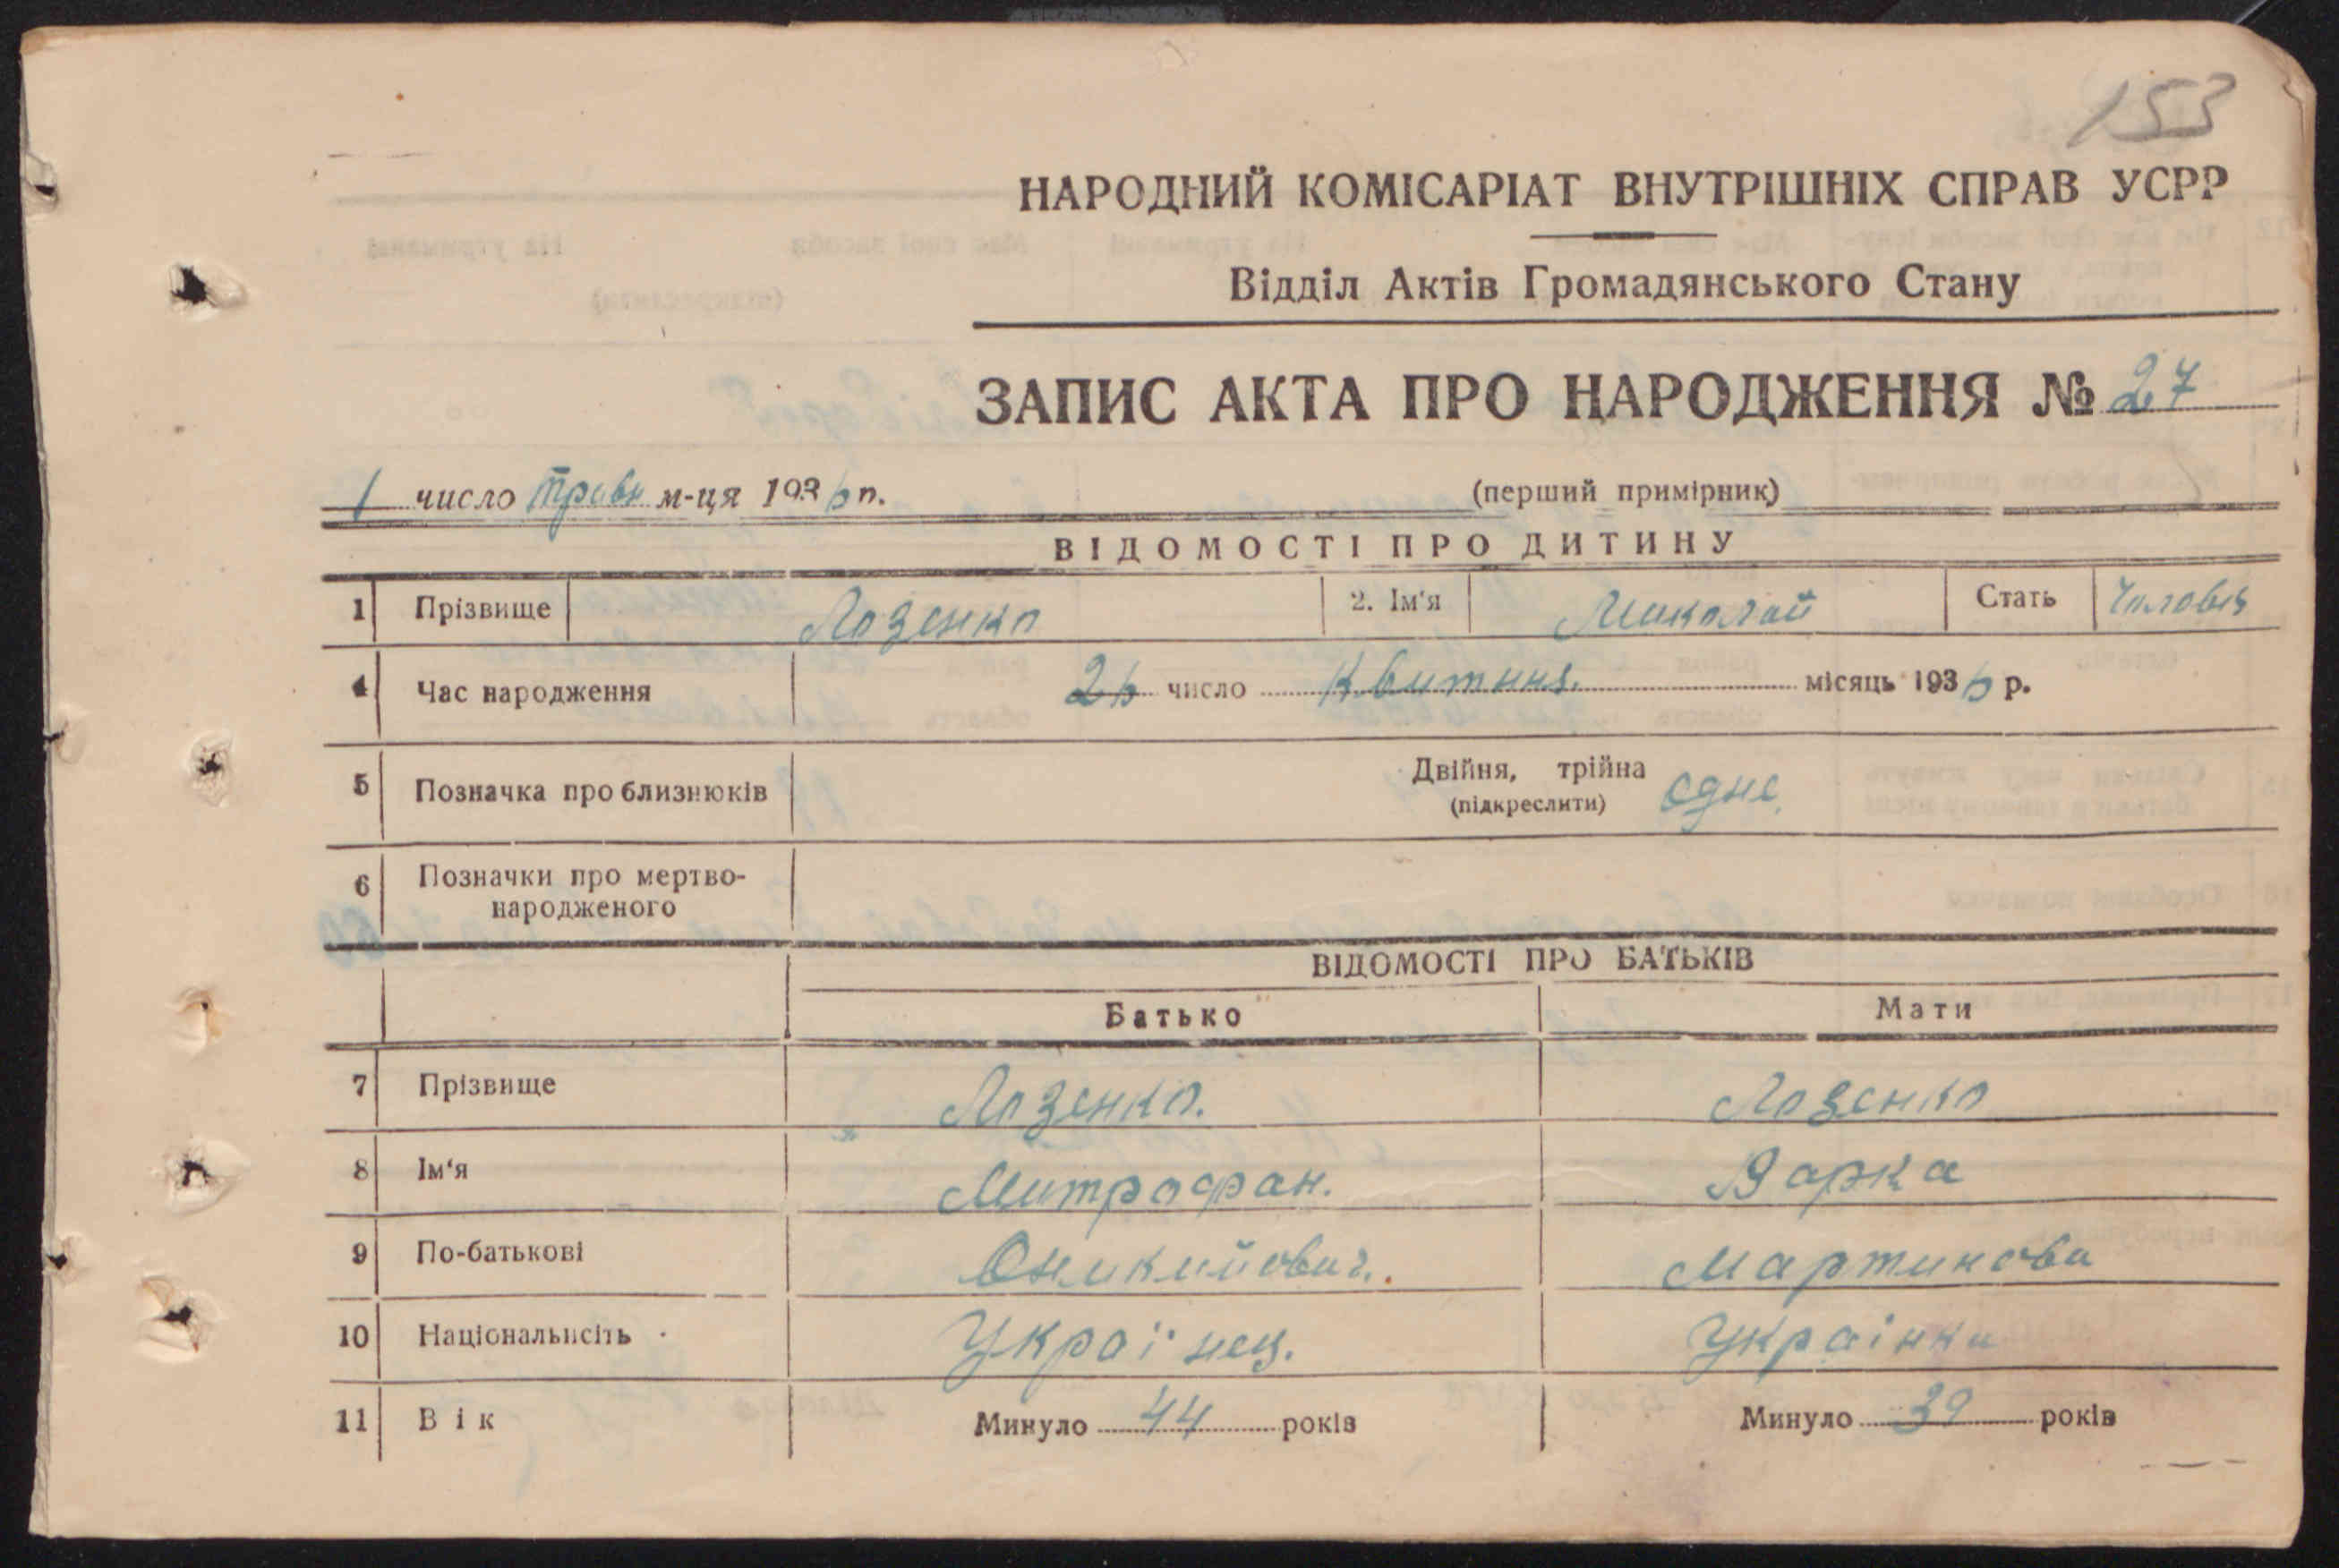 153
НАРОДНИЙ КОМІСАРІАТ ВНУТРІШНІХ СПРАВ УСРР
Відділ Актів Громадянського Стану
ЗАПИС АКТА ПРО НАРОДЖЕННЯ № 27
1 число Травн м-ця 1936 р. (перший примірник)
ВІДОМОСТІ ПРО ДИТИНУ
1 Прізвище Лозенко 2. Ім'я Миколай Стать Чоловіч
4 Час народження 26 число Квитння. місяць 1936 р.
5 Позначка про близнюків Двійня, трійна (підкреслити) Одне.
6 Позначки про мертво-
народженого
ВІДОМОСТІ ПРО БАТЬКІВ
Батько Мати
7 Прізвище Лозенко. Лозенко
8 Ім'я Митрофан. Варка
9 По-батькові Оникийович. Мартинова
10 Національнсіть Украінец. Украінка
11 Вік Минуло 44 років Минуло 39 років